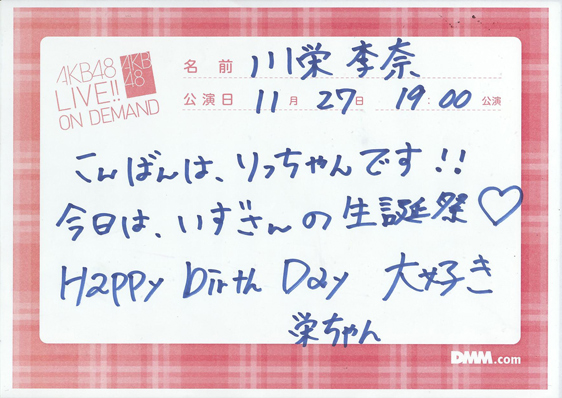 AKB48
LIVE!!
ON DEMAND
AKB
48
名前 川栄 李奈
公演日 11月 27日 19:00 公演
こんばんは、りっちゃんです!!
今日は、いずさんの生誕祭♡
Happy Birth Day 大好き
栄ちゃん
DMM.com